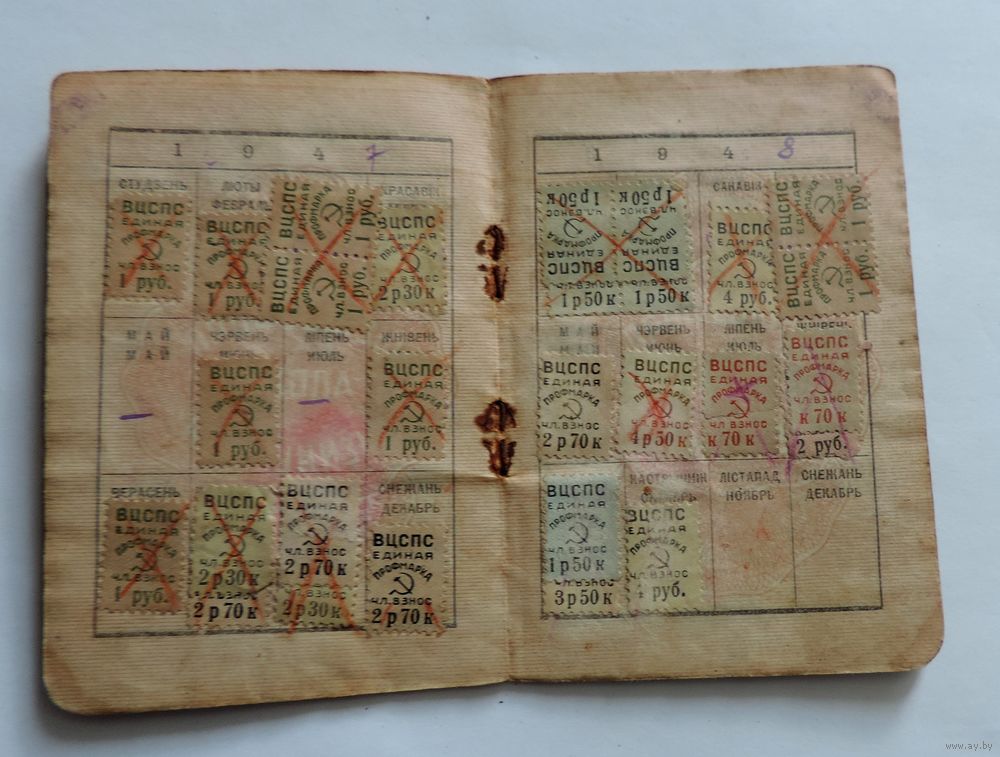 1 9 4 7
СТУДЗЕНЬ
ЛЮТЫ
ФЕВРАЛЬ
КРАСАВІК
ВЦСПС
ЕДИНАЯ
ПРОФМАРКА
ЧЛ. ВЗНОС
1 руб.
ВЦСПС
ЕДИНАЯ
ПРОФМАРКА
ЧЛ. ВЗНОС
1 руб.
ВЦСПС
ЕДИНАЯ
ПРОФМАРКА
ЧЛ. ВЗНОС
1 руб.
ВЦСПС
ЕДИНАЯ
ПРОФМАРКА
ЧЛ. ВЗНОС
1 руб.
ВЦСПС
ЕДИНАЯ
ПРОФМАРКА
ЧЛ. ВЗНОС
2 р 30 к
МАЙ
МАЙ
–
ЧЭРВЕНЬ
ИЮНЬ
ВЦСПС
ЕДИНАЯ
ПРОФМАРКА
ЧЛ. ВЗНОС
1 руб.
ЛІПЕНЬ
ИЮЛЬ
–
ЖНІВЕНЬ
ВЦСПС
ЕДИНАЯ
ПРОФМАРКА
ЧЛ. ВЗНОС
1 руб.
ВЕРАСЕНЬ
ВЦСПС
ЕДИНАЯ
ПРОФМАРКА
ЧЛ. ВЗНОС
1 руб.
ВЦСПС
ЕДИНАЯ
ПРОФМАРКА
ЧЛ. ВЗНОС
2 р 30 к
2 р 70 к
ВЦСПС
ЕДИНАЯ
ПРОФМАРКА
ЧЛ. ВЗНОС
2 р 70 к
ЧЛ. ВЗНОС
2 р 30 к
СНЕЖАНЬ
ДЕКАБРЬ
ВЦСПС
ЕДИНАЯ
ПРОФМАРКА
ЧЛ. ВЗНОС
2 р 70 к
1 9 4 8
ВЦСПС
ЕДИНАЯ
ПРОФМАРКА
ЧЛ. ВЗНОС
1 р 50 к
ВЦСПС
ЕДИНАЯ
ПРОФМАРКА
ЧЛ. ВЗНОС
1 р 50 к
1 р 50 к
1 р 50 к
САКАВІК
ВЦСПС
ЕДИНАЯ
ПРОФМАРКА
ЧЛ. ВЗНОС
4 руб.
ВЦСПС
ЕДИНАЯ
ПРОФМАРКА
ЧЛ. ВЗНОС
1 руб.
ВЦСПС
ЕДИНАЯ
ПРОФМАРКА
ЧЛ. ВЗНОС
1 руб.
МАЙ
МАЙ
ВЦСПС
ЕДИНАЯ
ПРОФМАРКА
ЧЛ. ВЗНОС
2 р 70 к
ЧЭРВЕНЬ
ИЮНЬ
ВЦСПС
ЕДИНАЯ
ПРОФМАРКА
ЧЛ. ВЗНОС
4 р 50 к
ЛІПЕНЬ
ИЮЛЬ
ВЦСПС
ЕДИНАЯ
ПРОФМАРКА
ЧЛ. ВЗНОС
к 70 к
ЖНІВЕНЬ
ВЦСПС
ЕДИНАЯ
ПРОФМАРКА
ЧЛ. ВЗНОС
к 70 к
2 руб.
ВЦСПС
ЕДИНАЯ
ПРОФМАРКА
ЧЛ. ВЗНОС
1 р 50 к
ЧЛ. ВЗНОС
3 р 50 к
ВЦСПС
ЕДИНАЯ
ПРОФМАРКА
ЧЛ. ВЗНОС
руб.
ЛІСТАПАД
НОЯБРЬ
СНЕЖАНЬ
ДЕКАБРЬ
www.ay.by